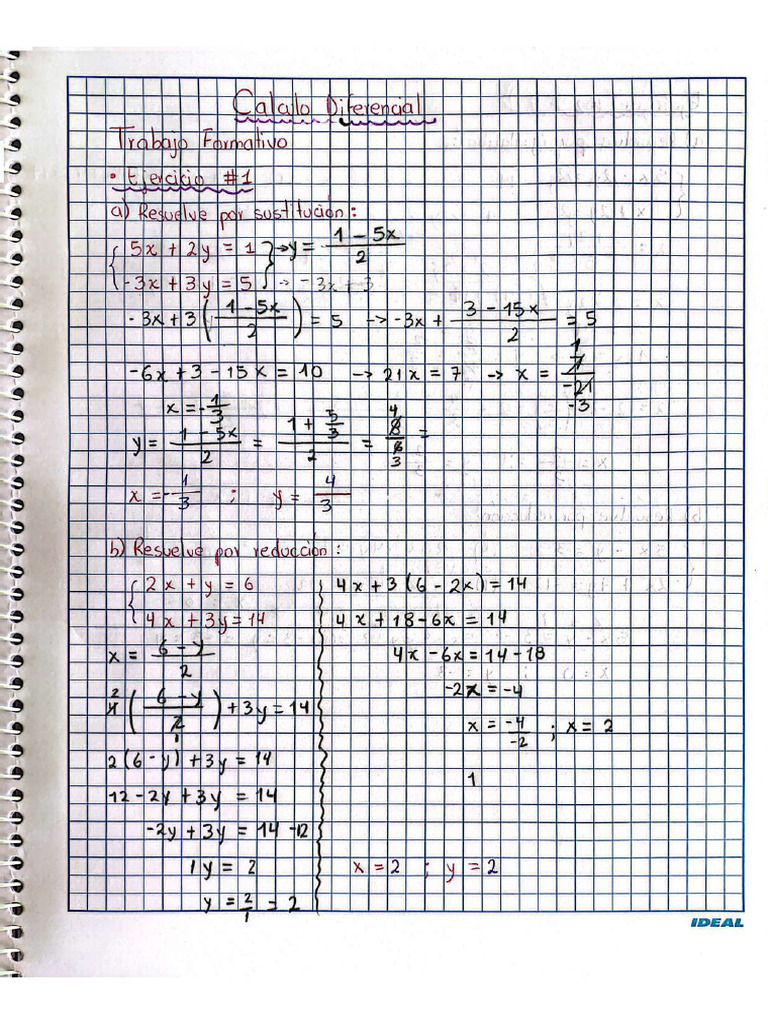 Calculo Diferencial
Trabajo Formativo
• Ejercicio #1
a) Resuelve por sustitución:
{ 5x + 2y = 1 } → y = (1 - 5x)/2
{ -3x + 3y = 5 } → -3x + 3
-3x + 3((1 - 5x)/2) = 5 → -3x + (3 - 15x)/2 = 5
-6x + 3 - 15x = 10 → 21x = 7 → x = 7/-21 1/-3
x = -1/3
y = (1 - 5x)/2 = (1 + 5/3)/2 = 8/6 4/3 =
x = -1/3 ; y = 4/3
b) Resuelve por reducción:
{ 2x + y = 6
{ 4x + 3y = 14
x = (6 - y)/2
4 2 ((6 - y)/2 1) + 3y = 14
2(6 - y) + 3y = 14
12 - 2y + 3y = 14
-2y + 3y = 14 - 12
1y = 2
y = 2/1 = 2
4x + 3(6 - 2x) = 14
4x + 18 - 6x = 14
4x - 6x = 14 - 18
-2x = -4
x = -4/-2 ; x = 2
1
x = 2 ; y = 2
IDEAL